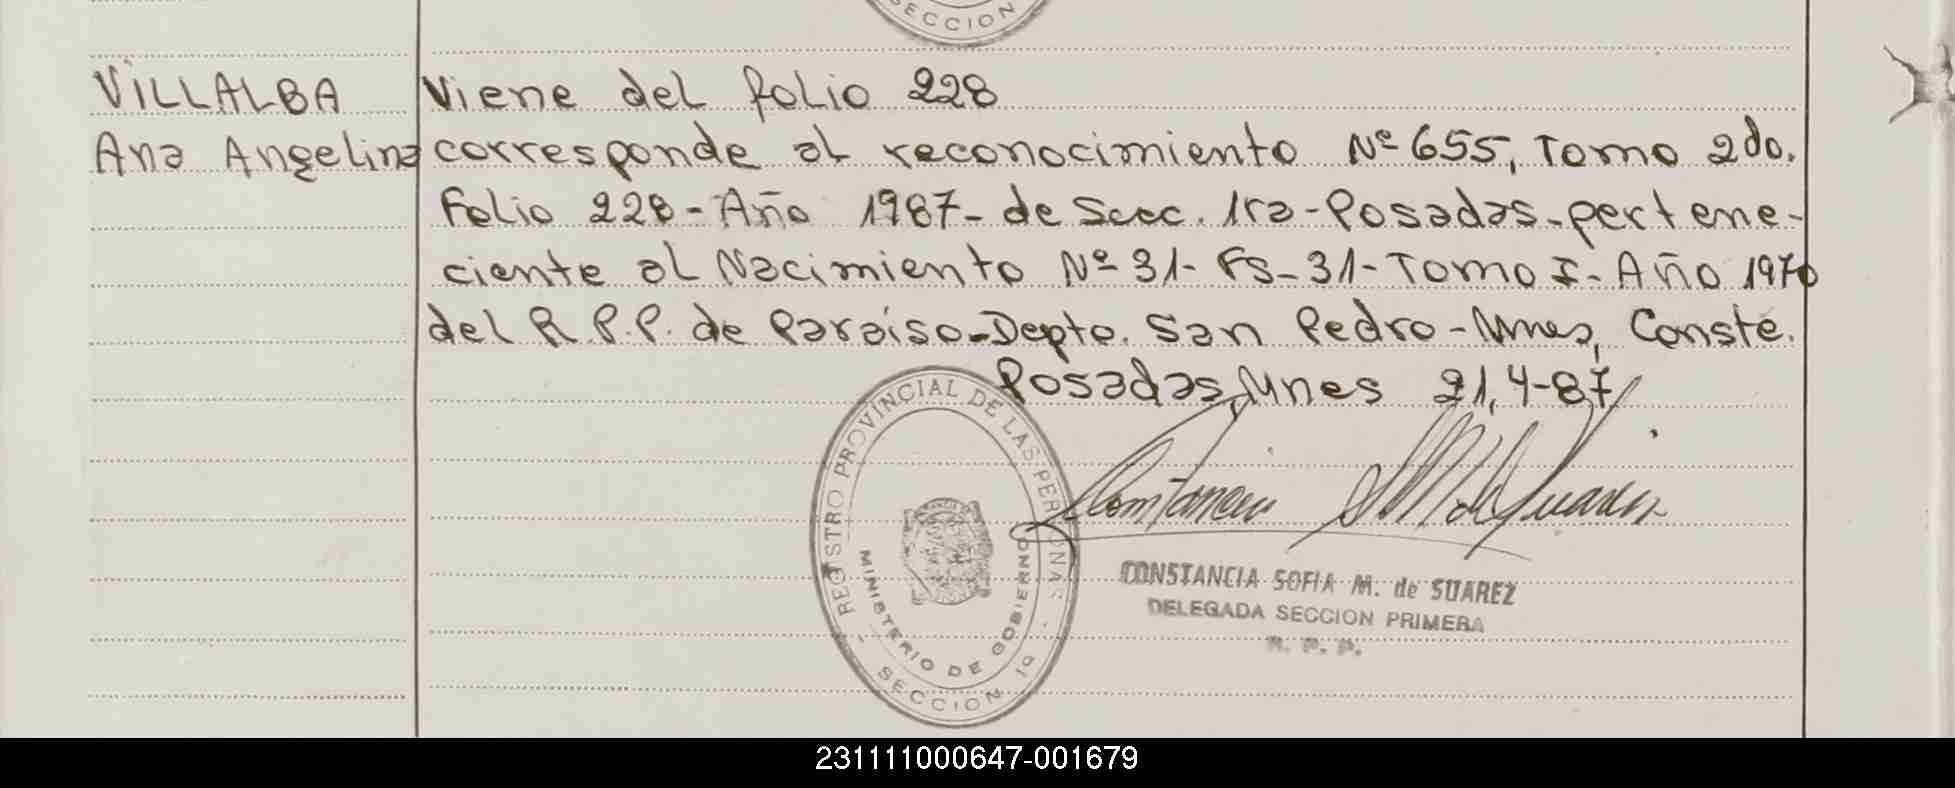 SECCION
VILLALBA Viene del folio 228
Ana Angelina corresponde al reconocimiento Nº 655, Tomo 2do.
Folio 228 - Año 1987 - de Secc. 1ra - Posadas - pertene-
ciente al Nacimiento Nº 31 - Fs - 31 - Tomo I - Año 1970
del R.P.P. de Paraiso - Depto. San Pedro - Mnes, Conste.
Posadas, Mnes 21,4-87
REGISTRO PROVINCIAL DE LAS PERSONAS
MINISTERIO DE GOBIERNO
- SECCION 1a -
CONSTANCIA SOFIA M. de SUAREZ
DELEGADA SECCION PRIMERA
R. P. P.
231111000647-001679